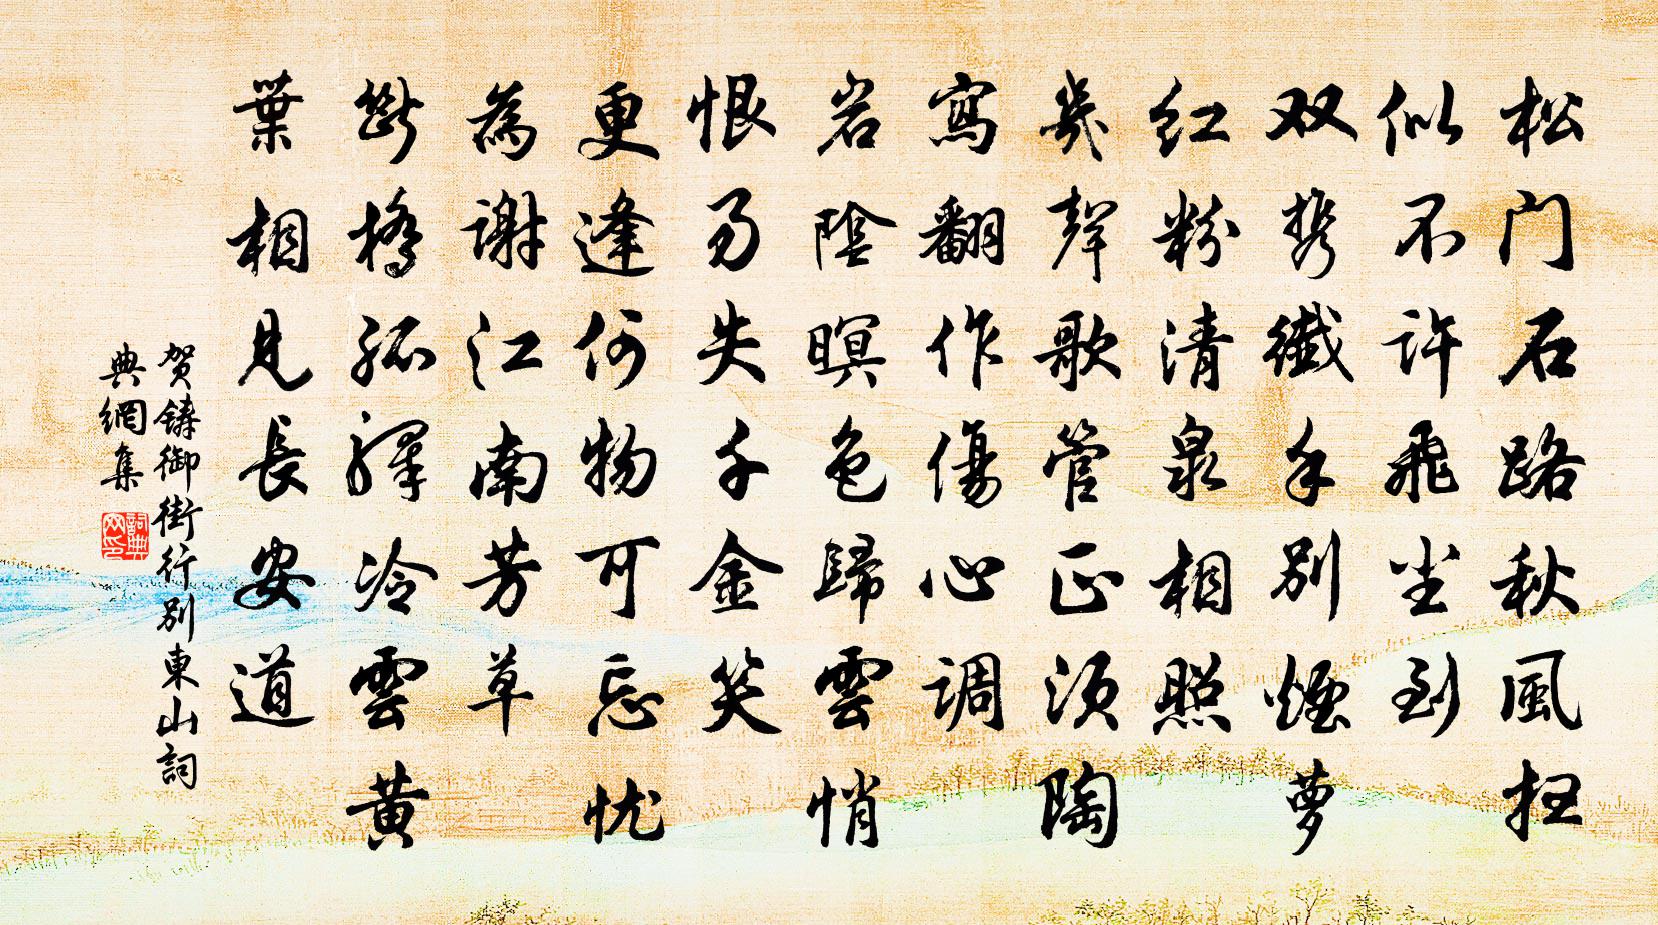 松门石路秋風扫
似不许飛尘到
双携纖手别煙萝
红粉清泉相照
幾聲歌管正须陶
寫翻作傷心调
岩陰暝色歸雲悄
恨易失千金笑
更逢何物可忘忧
為谢江南芳草
斷橋孤驛冷雲黄
葉相见長安道
贺铸御街行别東山詞
典網集
詞典网印